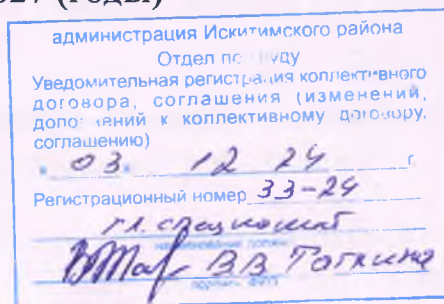 (годы)
администрация Искитимского района
Отдел по труду
Уведомительная регистрация коллективного
договора, соглашения (изменений,
дополнений к коллективному договору,
соглашению)
" 03 " 12 24 г.
Регистрационный номер 33-24
гл. специалист
ВВ